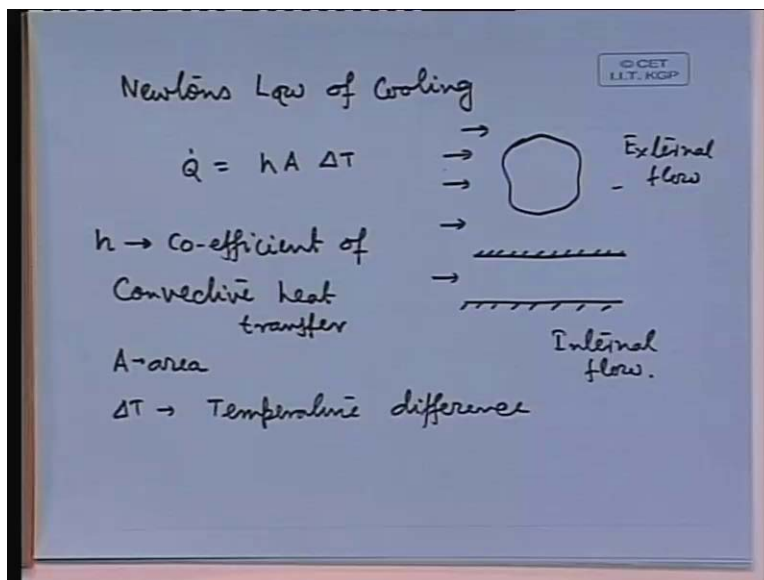 © CET
I.I.T. KGP
Newtons Law of Cooling
Q̇ = h A ΔT
External
flow
h → Co-efficient of
Convective heat
transfer
Internal
flow.
A→area
ΔT → Temperature difference